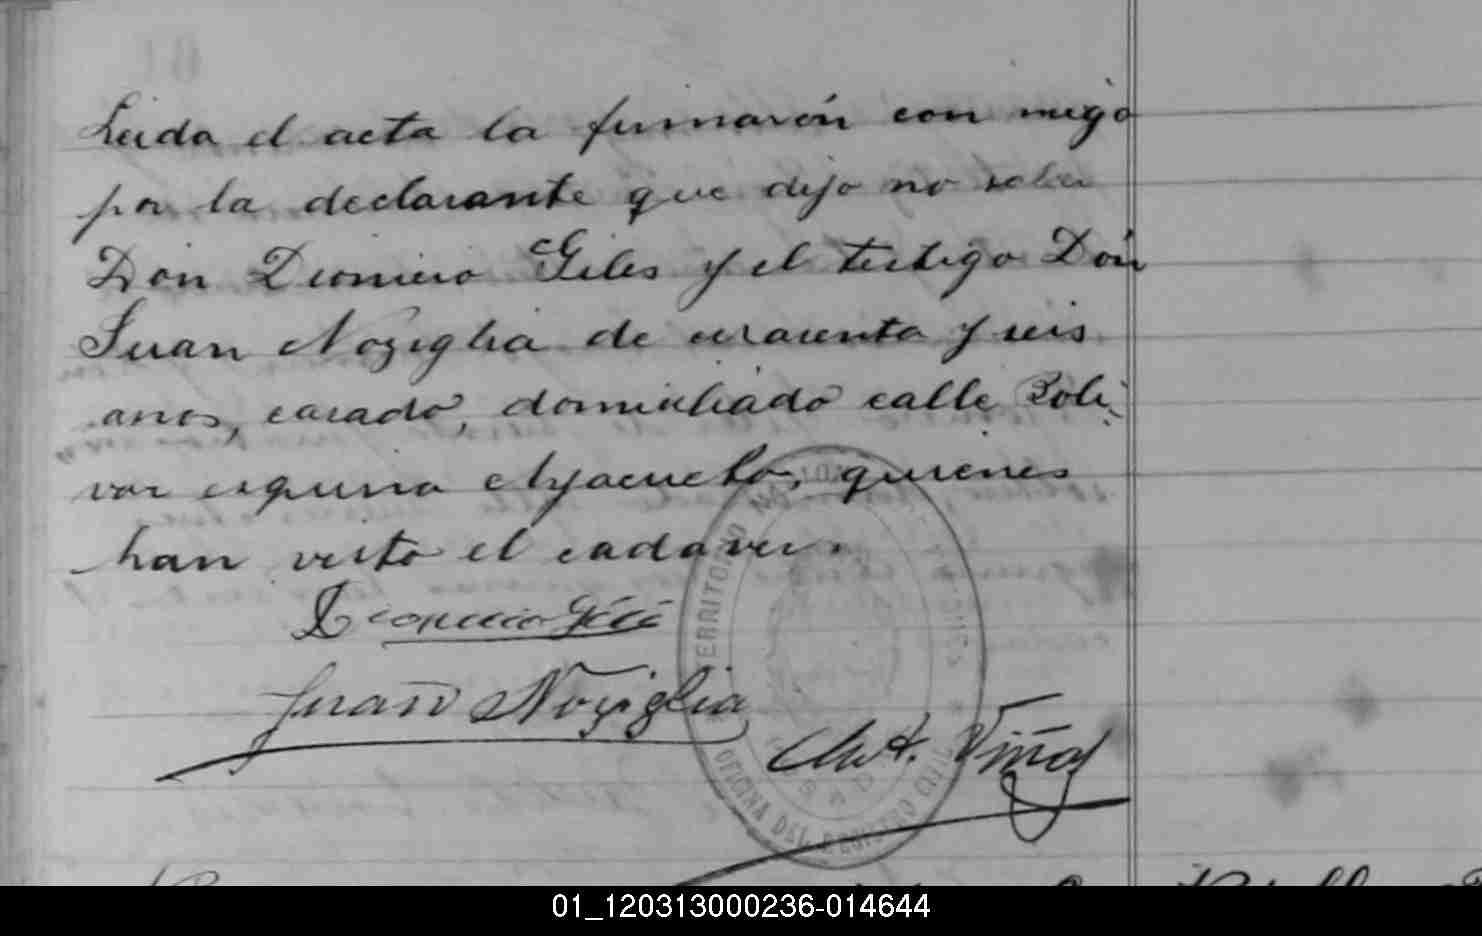 Leida el acta la firmarón con migo
por la declarante que dijo no saber
Don Dionicio Giles y el testigo Dón
Juan Noziglia de cuarenta y seis
anos, casado, domiciliado calle Boli
var esquina Ayacucho, quienes
han visto el cadaver.
Dionicio Giles
Juan Noziglia
Ant. Viñas
TERRITORIO
OFICINA DEL REGISTRO CIVIL
01_120313000236-014644